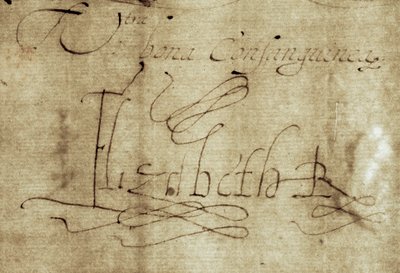 Vtra
bona Consanguinea
Elizabeth R